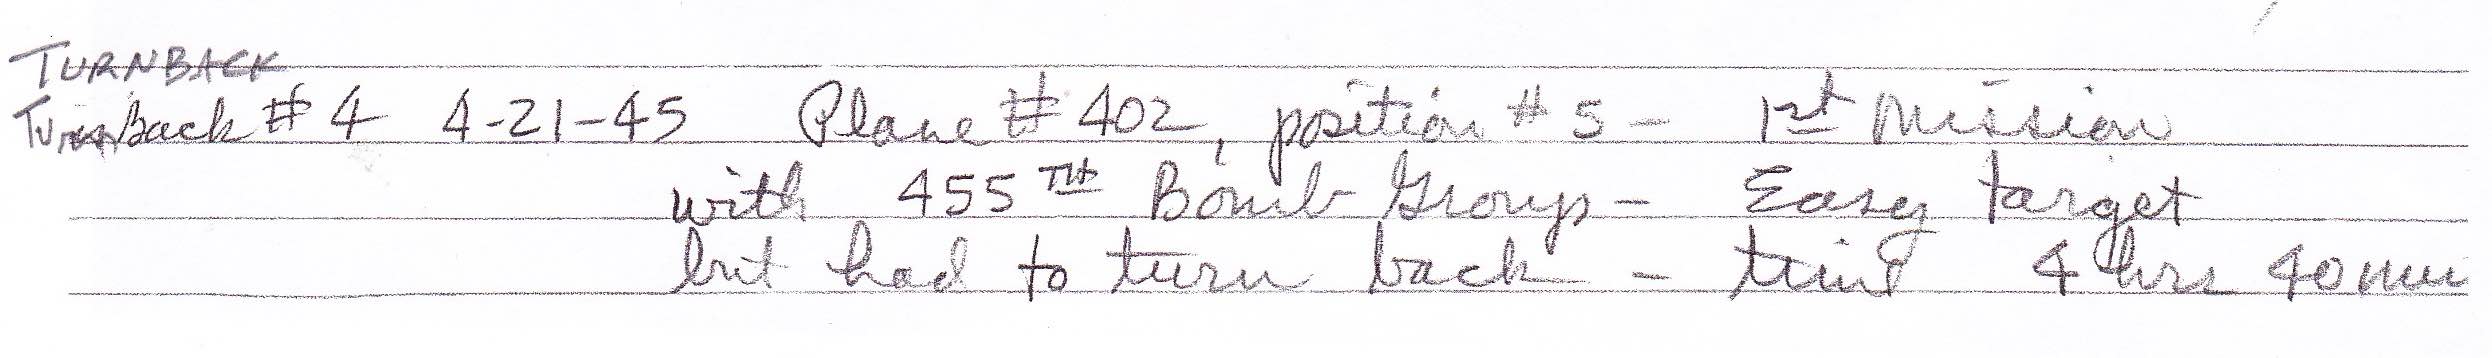 TURNBACK
Turn Back # 4 4-21-45 Plane # 402, position # 5 - 1st Mission
with 455TH Bomb Group - Easy target
but had to turn back - time 4 hrs 40 min